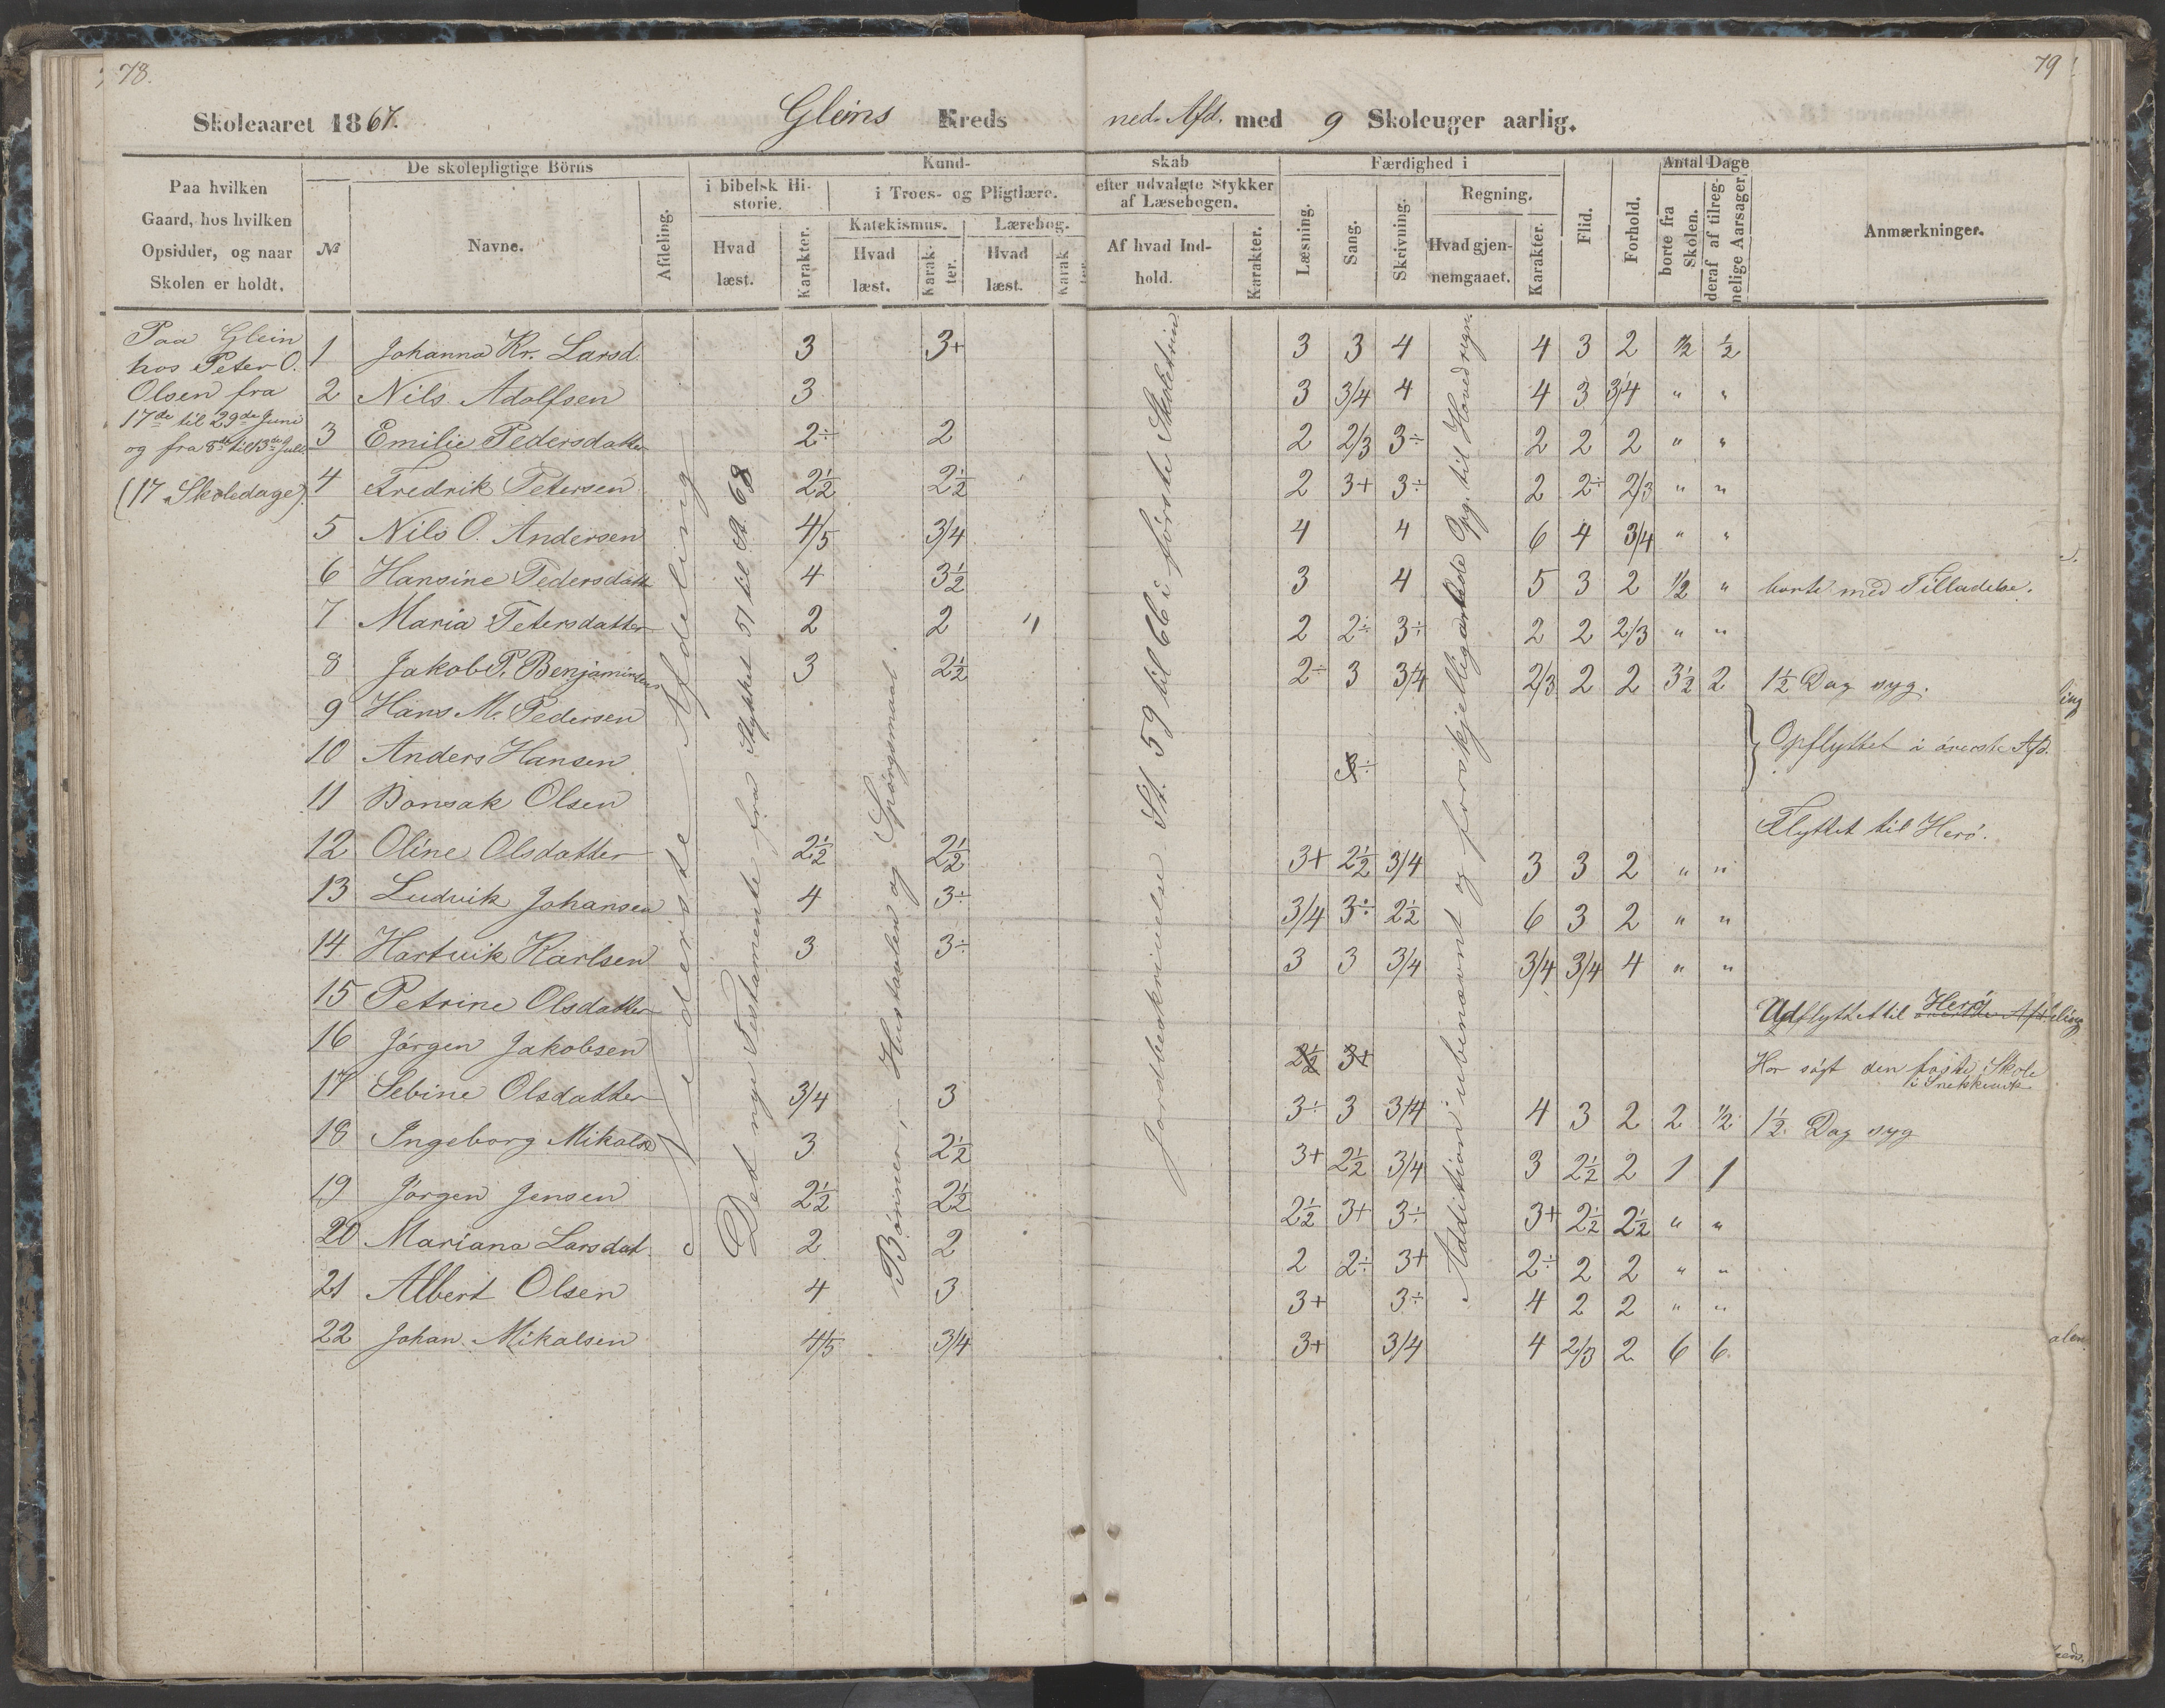 78.
79
Skoleaaret 1867. Gleins Kreds ned. Afd. med 9 Skoleuger aarlig.
Paa hvilken Gaard, hos hvilken Opsidder, og naar Skolen er holdt.
De skolepligtige Börns
№ Navne. Afdeling.
Kundskab
i bibelsk Historie. Hvad læst. Karakter.
i Troes- og Pligtlære.
Katekismus. Hvad læst. Karakter.
Lærebog. Hvad læst. Karakter.
efter udvalgte Stykker af Læsebogen.
Af hvad Indhold. Karakter.
Færdighed i
Læsning. Sang. Skrivning.
Regning. Hvad gjennemgaaet. Karakter.
Flid. Forhold.
Antal Dage
borte fra Skolen. deraf af tilregnelige Aarsager.
Anmærkninger.
Paa Glein
hos Peter O.
Olsen fra
17de til 29de Juni
og fra 8de til 13de Juli.
(17 Skoledage).
Nederste Afdeling
Det nye Testamente fra Stykket 51 til St. 68
Bönner, Hustavlen og Spörgsmaal.
Jordbeskrivelse St. 59 til 66 i förste Skoletrin
Addition i ubenævnt og forskjelligartede Opg. til Hovedregn.
1 Johanna Kr. Larsd. 3 3+ 3 3 4 4 3 2 1/2 1/2
2 Nils Adolfsen 3 3 3/4 4 4 3 3/4 " "
3 Emilie Pedersdatter 2÷ 2 2 2/3 3÷ 2 2 2 " "
4 Fredrik Petersen 2½ 2½ 2 3+ 3÷ 2 2÷ 2/3 " "
5 Nils O. Andersen 4/5 3/4 4 4 6 4 3/4 " "
6 Hansine Pedersdatter 4 3½ 3 4 5 3 2 1/2 " borte med Tilladelse.
7 Maria Petersdatter 2 2 " 2 2÷ 3÷ 2 2 2/3 " "
8 Jakob P. Benjaminsen 3 2½ 2÷ 3 3/4 2/3 2 2 3½ 2 1½ Dag syg.
9 Hans M. Pedersen
10 Anders Hansen 3÷ Opflyttet i överste Afd.
11 Bonsak Olsen Flyttet til Herö.
12 Oline Olsdatter 2½ 2½ 3+ 2½ 3/4 3 3 2 " "
13 Ludvik Johansen 4 3÷ 3/4 3÷ 2½ 6 3 2 " "
14 Hartvik Karlsen 3 3÷ 3 3 3/4 3/4 3/4 4 " "
15 Petrine Olsdatter Udflyttet til Herö överste Afdeling
16 Jörgen Jakobsen 2½ 3+ Har sögt den faste Skole
17 Sebine Olsdatter 3/4 3 3÷ 3 3/4 4 3 2 2 1/2 1½ Dag syg
18 Ingeborg Mikalsd 3 2½ 3+ 2½ 3/4 3 2½ 2 1 1
19 Jörgen Jensen 2½ 2½ 2½ 3+ 3÷ 3+ 2½ 2½ " "
20 Mariana Larsdat. 2 2 2 2÷ 3+ 2÷ 2 2 " "
21 Albert Olsen 4 3 3+ 3÷ 4 2 2 " "
22 Johan Mikalsen 4/5 3/4 3+ 3/4 4 2/3 2 6 6